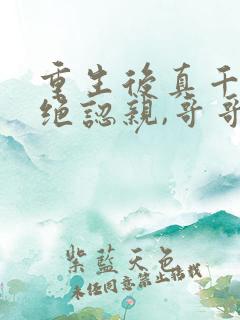 重生後真千
绝認親,哥哥
紫藍天色
未任同意禁止搭載